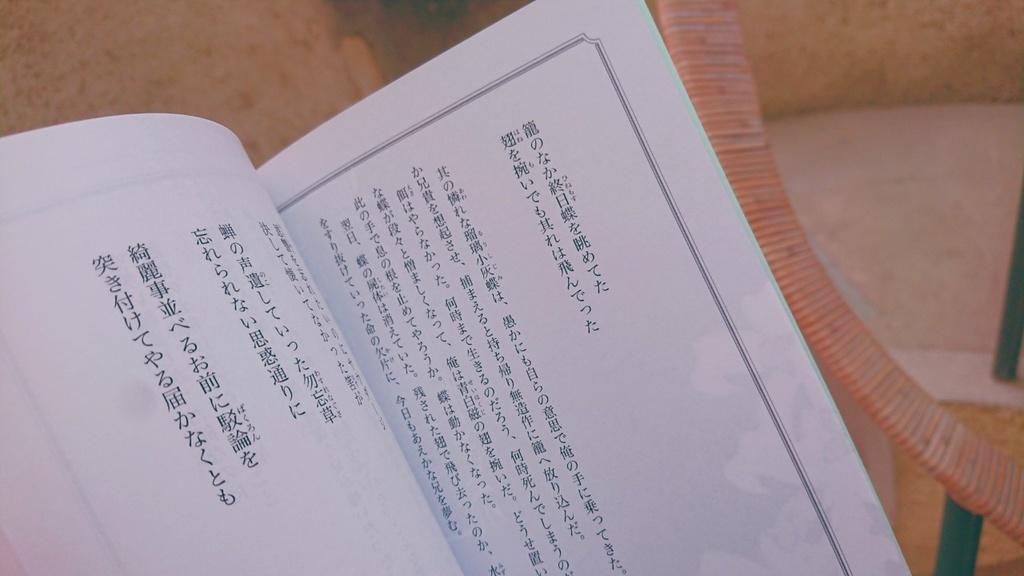 籠のなか終日蝶を眺めてた
翅を捥いでも其れは飛んでった
其の憐れな瑠璃小灰蝶は、愚かにも自らの意思で俺の手に乗ってきた。
か兄貴を想起させ、捕まえると持ち帰り無造作に籠へ放り込んだ。
餌はやらなかった。何時まで生きるのだろう、何時死んでしまうのだ
な蝶が段々と憎ましくなって、俺は青白磁の翅を捥いだ。どうせ置い
此の手で息の根を止めてやろうか。蝶は動かなくなった。
翌日、蝶の屍体は消えていた。残された翅で飛び去ったのか、水
をすり抜けていった命の欠片に、今日もあえかな兄を夢む。
蝉の声遺していった勿忘草
忘れられない思惑通りに
綺麗事並べるお前に駁論を
突き付けてやる届かなくとも